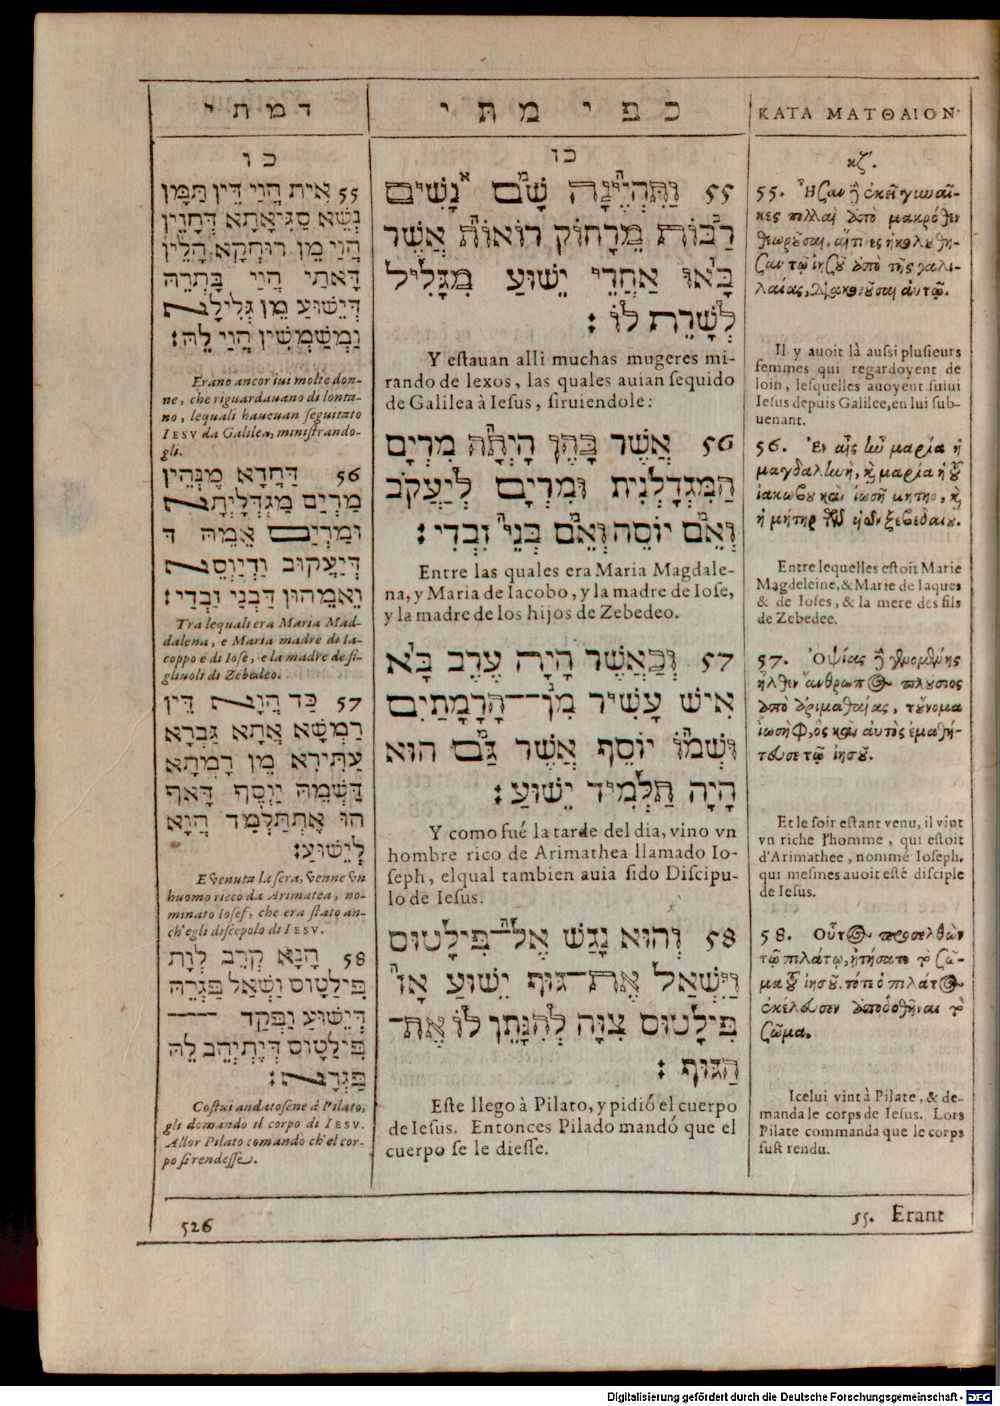 דמתי
כו
55 אִית הֲוַי דֵּין תַּמָּן
נֶשֵּׁא סַגִּיאָתָא דְּחָזְיָן
הֲוַי מֵן רוּחְקָא הָלֵּין
דָּאתַי הֲוַי בָּתְרֵהּ
דְּיֵשׁוּעַ מֵן גְּלִילָא
וַמְשַׁמְּשִׁין הֲוַי לֵהּ:
Erano ancor iui molte don-
ne, che riguardauano di lonta-
no, lequali haueuan seguitato
IESV da Galilea, ministrando-
gli.
56 דַּחֲדָא מֶנְּהֵין
מַרְיַם מַגְדְּלָיְתָא
וּמַרְיַם אֶמֵּהּ דּ
דְּיַעֲקוּב וַדְיוֹסֵא
וֶאֶמְּהוּן דַּבְנַי זַבְדַי:
Tra lequali era Maria Mad-
dalena, e Maria madre di Ia-
coppo e di Iose, e la madre de fi-
gliuoli di Zebedeo.
57 כַּד הֲוָא דֵּין
רַמְשָׁא אֶתָא גַּבְרָא
עַתִּירָא מֵן רָמְתָא
דַּשְׁמֵהּ יַוְסֵף דָּאף
הוּ אֶתְתַּלְמַד הֲוָא
לְיֵשׁוּעַ:
E venuta la sera, venne vn
huomo ricco da Arimatea, no-
minato Iosef, che era stato an-
ch'egli discepolo di IESV.
58 הָנָא קְרֵב לְוָת
פִּילַטוֹס וַשְׁאֵל פַּגְרֵהּ
דְּיֵשׁוּעַ וַפְקַד
פִּילַטוֹס דְּיֶתְיְהֵב לֵהּ
פַּגְרָא:
Costui andatosene à Pilato,
gli domando il corpo di IESV.
Allor Pilato comandò ch'el cor-
po si rendesse.
526
כפי מתי
כז
55 וַתִּהְיֶינָה שָׁם נָשִׁים
רַבּוֹת מֵרָחוֹק רוֹאוֹת אֲשֶׁר
בָּאוּ אַחֲרֵי יֵשׁוּעַ מִגָּלִיל
לְשָׁרֵת לוֹ:
Y estauan alli muchas mugeres mi-
rando de lexos, las quales auian seguido
de Galilea à Iesus, siruiendole:
56 אֲשֶׁר בָּהֶן הָיְתָה מִרְיָם
הַמִּגְדָּלְנִית וּמִרְיָם לְיַעֲקֹב
וְאֵם יוֹסֵה וְאֵם בְּנֵי זַבְדִי:
Entre las quales era Maria Magdale-
na, y Maria de Iacobo, y la madre de Iose,
y la madre de los hijos de Zebedeo.
57 וְכַאֲשֶׁר הָיָה עֶרֶב בָּא
אִישׁ עָשִׁיר מִן־־הָרָמָתַיִם
וּשְׁמוֹ יוֹסֵף אֲשֶׁר גַּם הוּא
הָיָה תַּלְמִיד יֵשׁוּעַ:
Y como fué la tarde del dia, vino vn
hombre rico de Arimathea llamado Io-
seph, elqual tambien auia sido Discipu-
lo de Iesus.
58 וְהוּא נָגַשׁ אֶל־פִּילָטוּס
וַיִּשְׁאַל אֶת־גּוּף יֵשׁוּעַ אָז
פִּילָטוּס צִוָּה לְהִנָּתֵן לוֹ אֶת־
הַגּוּף:
Este llegó à Pilato, y pidió el cuerpo
de Iesus. Entonces Pilado mandó que el
cuerpo se le diesse.
ΚΑΤΑ ΜΑΤΘΑΙΟΝ
κζ'.
55. Ἦσαν δὲ ἐκεῖ γυναῖ-
κες πολλαὶ ἀπὸ μακρόθεν
θεωροῦσαι, αἵτινες ἠκολούθη-
σαν τῷ ἰησοῦ ἀπὸ τῆς γαλι-
λαίας, διακονοῦσαι αὐτῷ.
Il y auoit là aussi plusieurs
femmes qui regardoyent de
loin, lesquelles auoyent suiui
Iesus depuis Galilee, en lui sub-
uenant.
56. Ἐν αἷς ἦν μαρία ἡ
μαγδαληνὴ, καὶ μαρία ἡ τοῦ
ἰακώβου καὶ ἰωσῆ μήτηρ, καὶ
ἡ μήτηρ τῶν υἱῶν ζεβεδαίου.
Entre lequelles estoit Marie
Magdeleine, & Marie de Iaques
& de Ioses, & la mere des fils
de Zebedee.
57. Ὀψίας δὲ γενομένης
ἦλθεν ἄνθρωπος πλούσιος
ἀπὸ ἀριμαθαίας, τοὔνομα
ἰωσὴφ, ὃς καὶ αὐτὸς ἐμαθή-
τευσε τῷ ἰησοῦ.
Et le soir estant venu, il vint
vn riche l'homme, qui estoit
d'Arimathee, nommé Ioseph,
qui mesmes auoit esté disciple
de Iesus.
58. Οὗτος προσελθὼν
τῷ πιλάτῳ, ᾐτήσατο τὸ σῶ-
μα τοῦ ἰησοῦ. τότε ὁ πιλάτος
ἐκέλευσεν ἀποδοθῆναι τὸ
σῶμα.
Icelui vint à Pilate, & de-
manda le corps de Iesus. Lors
Pilate commanda que le corps
fust rendu.
55. Erant
Digitalisierung gefördert durch die Deutsche Forschungsgemeinschaft - DFG